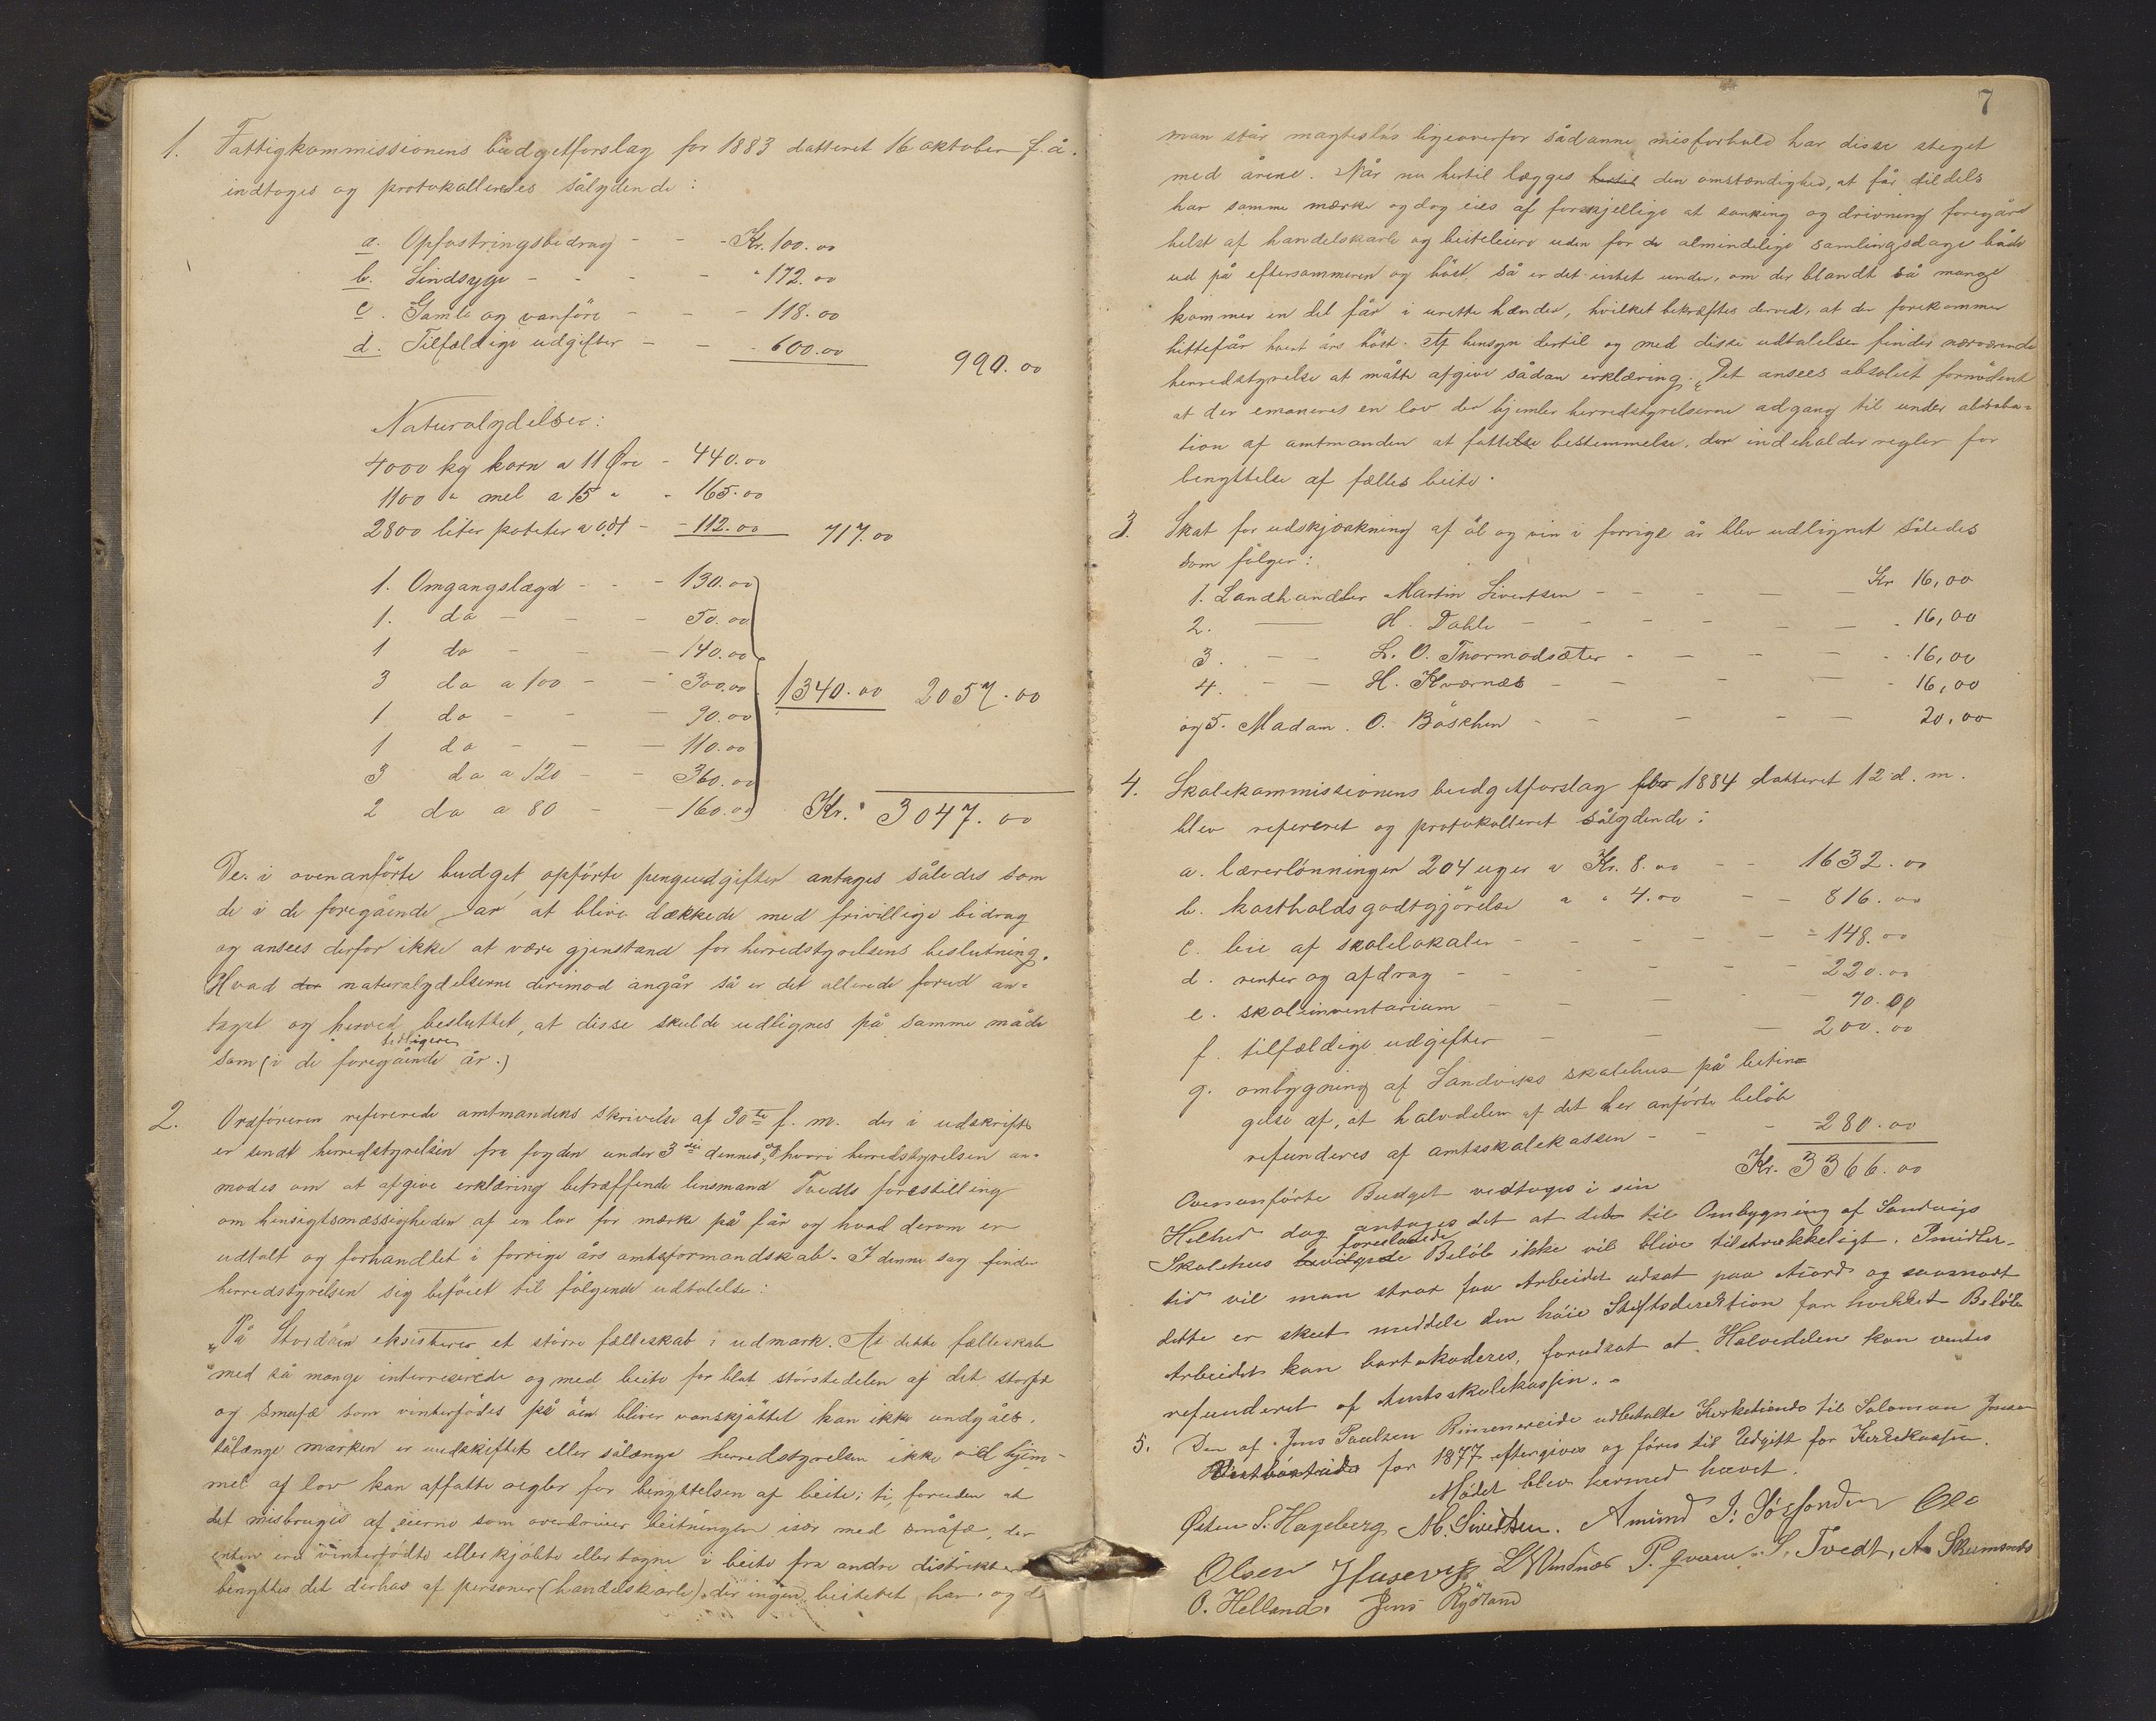 1. Fattigkommissionens budgetforslag for 1883 datteret 16 oktober f. å.
indtoges og protokolleredes sålydende:
a. Opfostringsbidrag - - - Kr. 100.00
b. Sindsyge - - - - " 172.00
c. Gamle og vanføre - - - 118.00
d. Tilfældige udgifter - - - 600.00 990.00
Naturalydelser:
4000 kg korn a 11 Øre - 440.00
1100 " mel a 15 " - 165.00
2800 liter poteter a 0.04 - - 112.00 717.00
1. Omgangslægd - - - 130.00
1. do - - - 50.00
1 do - - - 140.00
3 do a 100 - - 300.00 1340.00 2057.00
1 do - - - 90.00
1 do - - - 110.00
3 do a 120 - - 360.00
2 do a 80 - - 160.00 Kr. 3047.00
De i ovenanførte budget opførte pengeudgifter antages således som
de i de foregående år at blive dækkede med frivillige bidrag
og ansees derfor ikke at være gjenstand for herredstyrelsens beslutning.
Hvad der naturalydelserne derimod angår så er det allerede forud an-
taget og herved besluttet, at disse skulde udlignes på samme måde
tidligere
som (i de foregående år.)
2. Ordføreren refererede amtmandens skrivelse af 30te f. m. der i udskrift
er sendt herredstyrelsen fra fogden under 3die dennes, og hvori herredstyrelsen an-
modes om at afgive erklæring betræffende lensmand Tvedts forestilling
om hensigtsmæssigheden af en lov for mærke på får og hvad derom er
udtalt og forhandlet i forrige års amtsformandskab. I denne sag finder
herredstyrelsen sig beføiet til følgende udtalelse:
"På Stordøen eksisterer et større fælleskab i udmark. At dette fælleskab
med så mange interreserede og med beite for blot størstedelen af det storfæ
og småfæ som vinterfødes på øen bliver vanskjøttet kan ikke undgåes.
sålænge marken er uudskiftet eller sålænge herredstyrelsen ikke ved hjem-
mel af lov kan affatte regler for benyttelsen af beite; ti, foruden at
det misbruges af eierne som overdriver beitningen især med småfæ, der
enten ere vinterfødte eller kjøbte eller tagne i beite fra andre distrikter
benyttes det derhos af personer (handelskarle), der ingen beiteret har, og d
7
man står magtesløs ligeoverfor sådanne misforhold har disse steget
med årene. Når nu hertil lægges hertil den omstændighed, at får tildels
har samme mærke og dog eies af forskjellige at sanking og drivning foregår
helst af handelskarle og beiteleiere uden for de almindelige samlingsdage både
ud på eftersommeren og høst, så er det intet under, om der blandt så mange
kommer en del får i urette hænder, hvilket bekræftes derved, at der forekommer
hittefår hvert års høst. Af hensyn dertil og med disse udtalelser finder nærværende
herredstyrelse at måtte afgive sådan erklæring: "Det ansees absolut fornødent
at der emaneres en lov der hjemler herredstyrelserne adgang til under
tion af amtmanden at fatte bestemmelse, der indeholder regler for
benyttelse af fælles beite.
3. Skat for udskjænkning af øl og vin i forrige år blev udlignet således
som følger:
1. Landhandler Martin Sivertsen - - - - - Kr 16,00
2. — H. Dahle - - - - - - 16,00
3. — L. O. Thormodsæter - - - - - 16,00
4. — H. Kværnæs - - - - - 16,00
og 5. Madam. O. Böschen - - - - - 20,00
4. Skolekommissionens budgetforslag for 1884 datteret 12 d. m.
blev refereret og protokolleret sålydende:
a. lærerlønninger 204 uger a Kr. 8.00 - - 1632.00
b. kostholdsgodtgjørelse " " 4.00 - - 816.00
c. leie af skolelokaler - - - - - 148.00
d. renter og afdrag - - - - - - 220.00
e. skoleinventarium - - - - - 70.00
f. tilfældige udgifter - - - 200.00
g. ombygning af Sandviks skolehus på betin-
gelse af, at halvdelen af det her anførte beløb
refunderes af amtsskolekassen - - - 280.00
Kr. 3366.00
Ovenanførte Budget vedtoges i sin
Helhed dog antages det at det til Ombygning af Sandvigs
foreslaaede
Skolehus bevilgede Beløb ikke vil blive tilstrækkeligt. Imidler-
tid vil man strax faa Arbeidet udsat paa Akord og saasnart
dette er skeet meddele den høie Stiftsdirektion for hvilket Beløb
Arbeidet kan bortakorderes, forudsat at Halvdelen kan ventes
refunderet af Amtsskolekassen. -
5. Den af Jens Paulsen Rimmereide udbetalte Kirketiende til Salomon Jensen
for 1877 eftergives og føres til Udgift for Kirkekassen.
Mødet blev hermed hævet.
Østen S. Hageberg M. Sivertsen. Amund J. Ole
Olsen Husevig P. S. Tvedt, A. Skumsnes
O. Helland. Jens Rydland